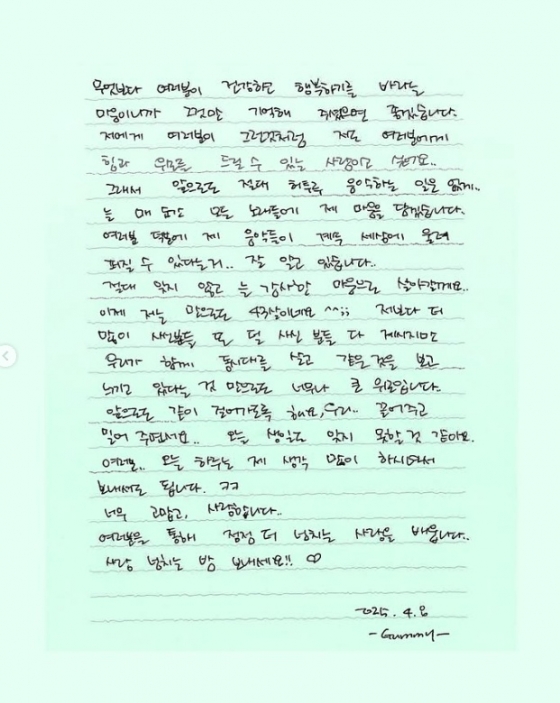 무엇보다 여러분이 건강하고 행복하기를 바라는
마음이니까 그것만 기억해 주셨으면 좋겠습니다.
저에게 여러분이 그런것처럼 저도 여러분에게
힘과 위로를 드릴 수 있는 사람이고 싶어요..
그래서 앞으로도 절대 허투루 음악하는 일은 없게..
늘 매 순간 모든 노래들에 제 마음을 담겠습니다.
여러분 덕분에 제 음악들이 계속 세상에 울려
퍼질 수 있다는거.. 잘 알고 있습니다..
절대 잊지 않고 늘 감사한 마음으로 살아갈게요..
이제 저는 만으로도 43살이네요 ^^;; 저보다 더
많이 사신분들 또 덜 사신 분들 다 계시지만
우리가 함께 동시대를 살고 같은 것을 보고
느끼고 있다는 것 만으로도 너무나 큰 위로입니다.
앞으로도 같이 걸어가도록 해요, 우리.. 끌어주고
밀어 주면서요.. 오늘 생일도 잊지 못할 것 같아요.
여러분.. 오늘 하루는 제 생각 많이 하시면서
보내셔도 됩니다. ㅋㅋ
너무 고맙고, 사랑합니다..
여러분을 통해 점점 더 넘치는 사랑을 배웁니다..
사랑 넘치는 밤 보내세요!! ♡
2025. 4. 8
-Gummy-